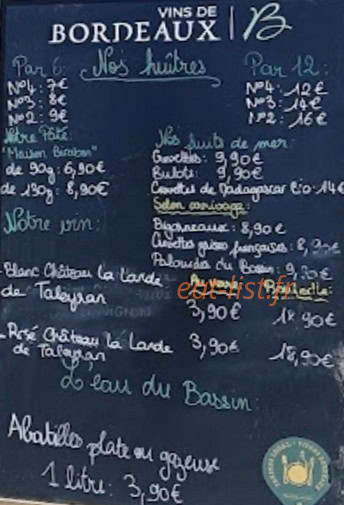 VINS DE
BORDEAUX B
Nos huîtres
Par 6:
N°4: 7€
N°3: 8€
N°2: 9€
Par 12:
N°4: 12€
N°3: 14€
N°2: 16€
Notre Pâté
de 90g: 6,90€
de 190g: 8,90€
Nos fruits de mer:
Crevettes: 9,90€
Bulots: 9,90€
Crevettes de Madagascar Bio: 14€
Selon arrivage:
Bigorneaux: 8,90€
Crevettes grises françaises: 8,90€
Palourde du Bassin: 9,90€
Notre vin:
Bouteille:
Blanc Château la Lande
de Taleyran 3,90€ 18,90€
eat-list.fr
- Rosé Château la Lande
de Taleyran 3,90€ 18,90€
L'eau du Bassin:
Abatilles plate ou gazeuse
1 litre: 3,90€